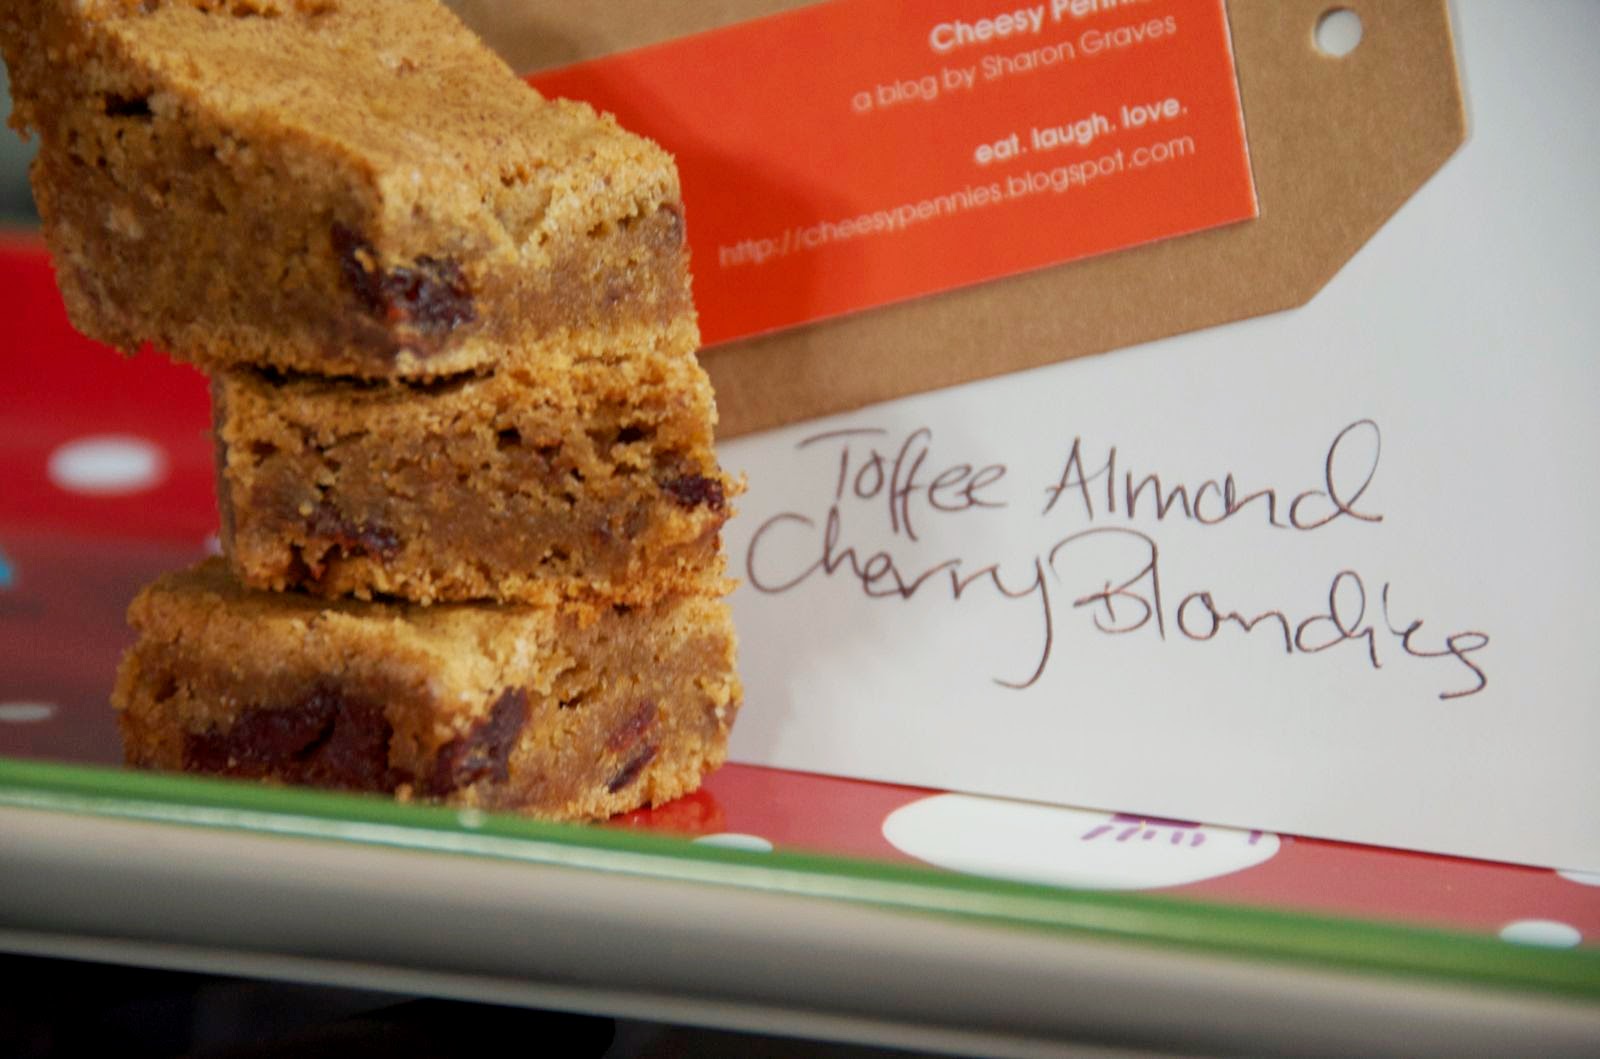 Cheesy Pennies
a blog by Sharon Graves
eat. laugh. love.
http://cheesypennies.blogspot.com
Toffee Almond
Cherry Blondies